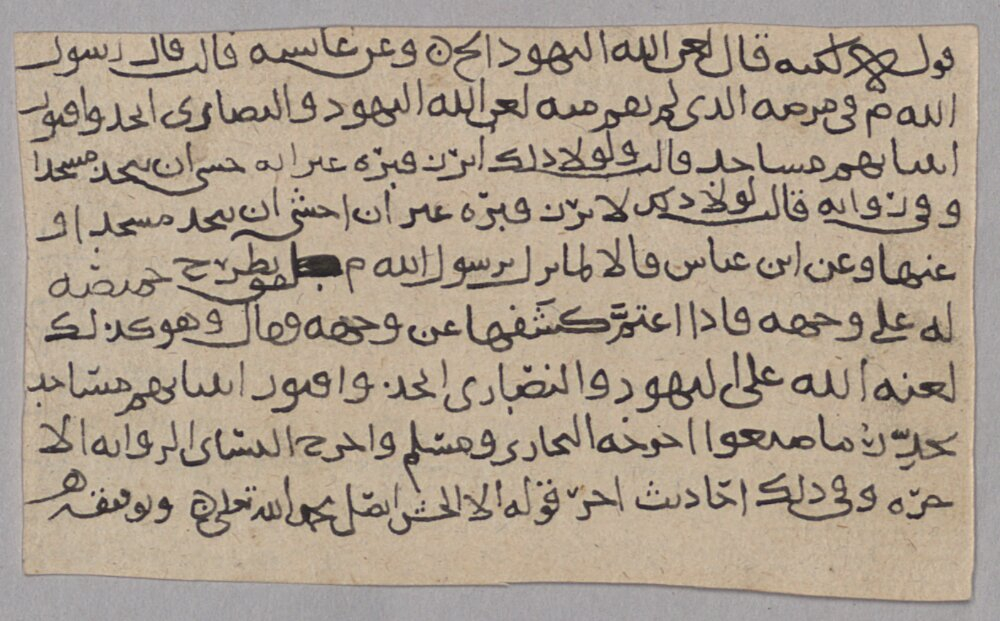 قوله لعنه قال لعن الله اليهود الخ وعن عايشه قالت قال رسول
الله م في مرضه الذي لم يقم منه لعن الله اليهود والنصارى اتخذوا قبور
انبيايهم مساجد قالت ولولا ذلك ابرز قبره غير انه خشي ان يتخذ مسجدا
وفي روايه قالت لولا ذلك لابرز قبره غير ان اخشى ان يتخذ مسجدا و
عنها وعن ابن عباس قالا لما نزل برسول الله م يطرح خميصه
له على وجهه فاذا اغتمَّ كشَفها عن وجهه فقال وهو كذلك
لعنه الله على اليهود والنصارى اتخذوا قبور انبيايهم مساجد
يحذِّر ما صنعوا اخرجه البخاري ومسلم واخرج النساي الروايه الا
خره وفي ذلك احاديث اخر قوله الا الخ انتقل بحمد الله تعلى وتوفيقه